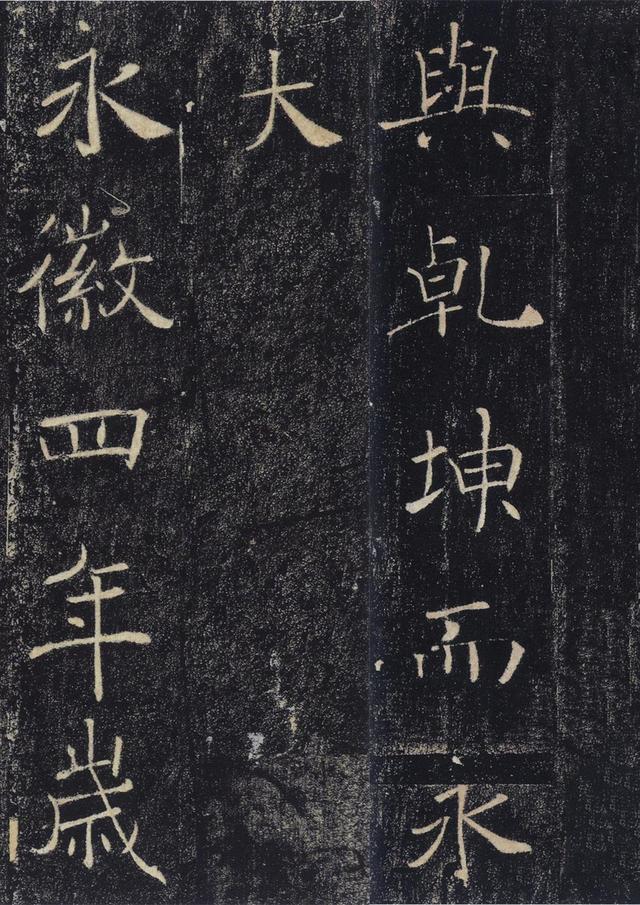 與乹坤而永
大
永徽四年歲